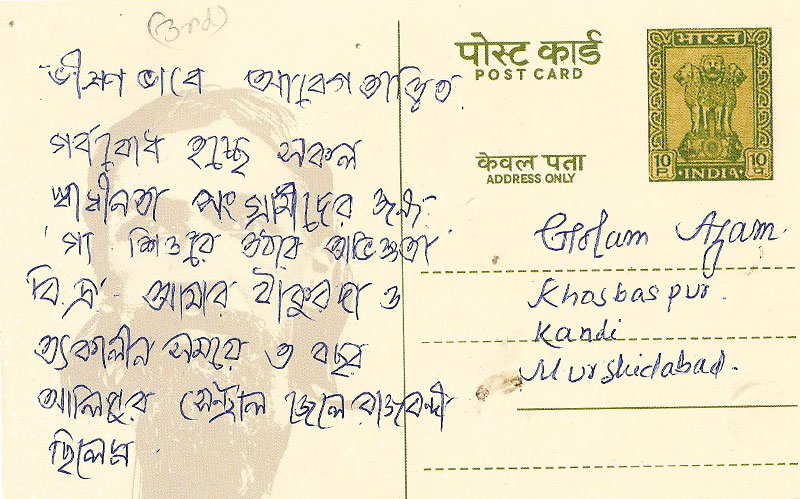 (3rd)
ভীষণ ভাবে আবেগ তাড়িত
গর্ববোধ হচ্ছে সকল
স্বাধীনতা সংগ্রামীদের জন্য
গা শিউরে ওঠার অভিজ্ঞতা
বি.দ্র. আমার ঠাকুরদা ও
তৎকালীন সময়ে ৩ বছর
আলিপুর সেন্ট্রাল জেলে রাজবন্দী
ছিলেন
पोस्ट कार्ड
POST CARD
केवल पता
ADDRESS ONLY
भारत
10 P 10 प
INDIA
Golam Azam.
Khosbaspur.
Kandi
Murshidabad.